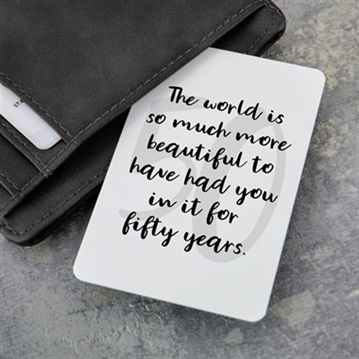 The world is
so much more
beautiful to
have had you
in it for
fifty years.
50